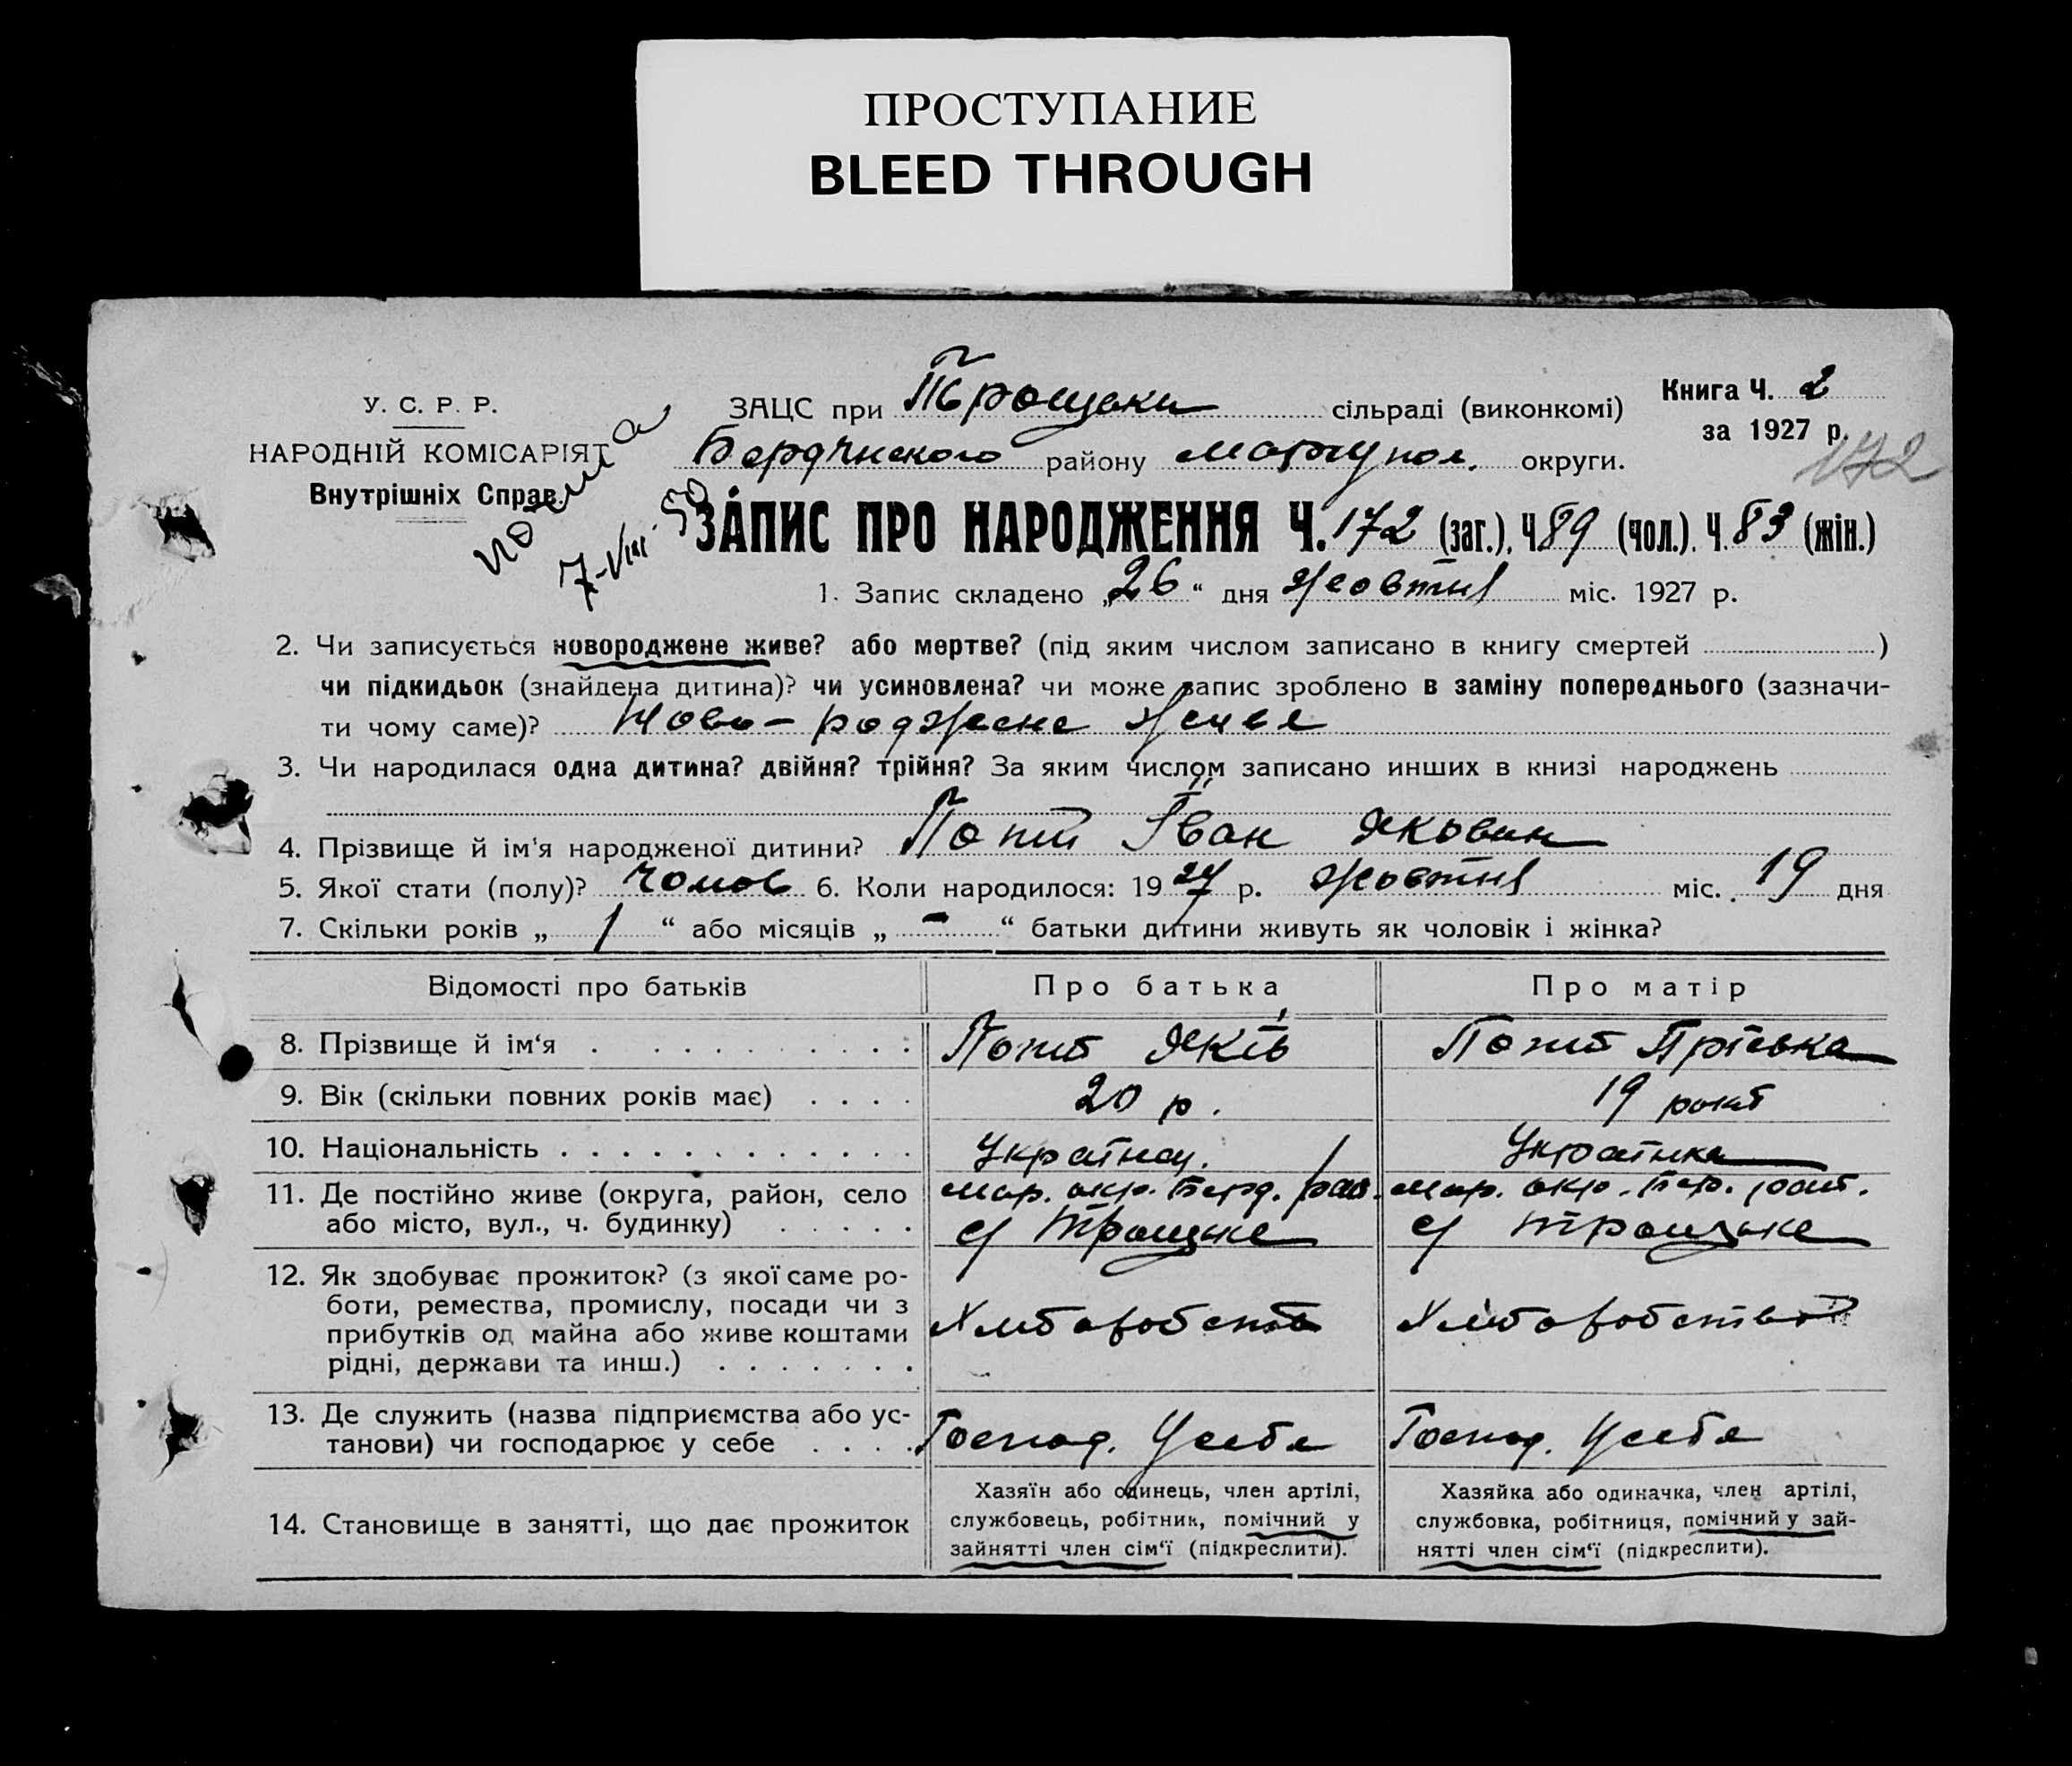 ПРОСТУПАНИЕ
BLEED THROUGH
У. С. Р. Р.
НАРОДНІЙ КОМІСАРІЯТ
Внутрішніх Справ.
ЗАЦС при сільраді (виконкомі)
району округи.
Книга Ч. 2
за 1927 р.
172
7-VIII-50
ЗАПИС ПРО НАРОДЖЕННЯ Ч. 172 (заг.), Ч. 89 (чол.), Ч. 83 (жін.)
1. Запис складено „26“ дня Жовтня міс. 1927 р.
2. Чи записується новороджене живе? або мертве? (під яким числом записано в книгу смертей )
чи підкидьок (знайдена дитина)? чи усиновлена? чи може запис зроблено в заміну попереднього (зазначи-
ти чому саме)? Ново-роджене
3. Чи народилася одна дитина? двійня? трійня? За яким числом записано инших в книзі народжень
4. Прізвище й ім'я народженої дитини? Іван Якович
5. Якої стати (полу)? Чолов 6. Коли народилося: 1927 р. Жовтня міс. 19 дня
7. Скільки років „ 1 “ або місяців „ - “ батьки дитини живуть як чоловік і жінка?
Відомості про батьків Про батька Про матір
8. Прізвище й ім‘я Яків
9. Вік (скільки повних років має) 20 р. 19 років
10. Національність Українец. Українка
11. Де постійно живе (округа, район, село Мар. окр. Берд. рай. Мар. окр. Бер. рай.
або місто, вул., ч. будинку) с/ Троцьке с/ Троцьке
12. Як здобуває прожиток? (з якої саме ро-
боти, ремества, промислу, посади чи з
прибутків од майна або живе коштами Хліборобство Хліборобство
рідні, держави та инш.)
13. Де служить (назва підприємства або ус-
танови) чи господарює у себе Господ. У себе Господ. У себе
14. Становище в занятті, що дає прожиток
Хазяїн або одинець, член артілі,
службовець, робітник, помічний у
зайнятті член сім‘ї (підкреслити).
Хазяйка або одиначка, член артілі,
службовка, робітниця, помічний у зай-
нятті член сім‘ї (підкреслити).